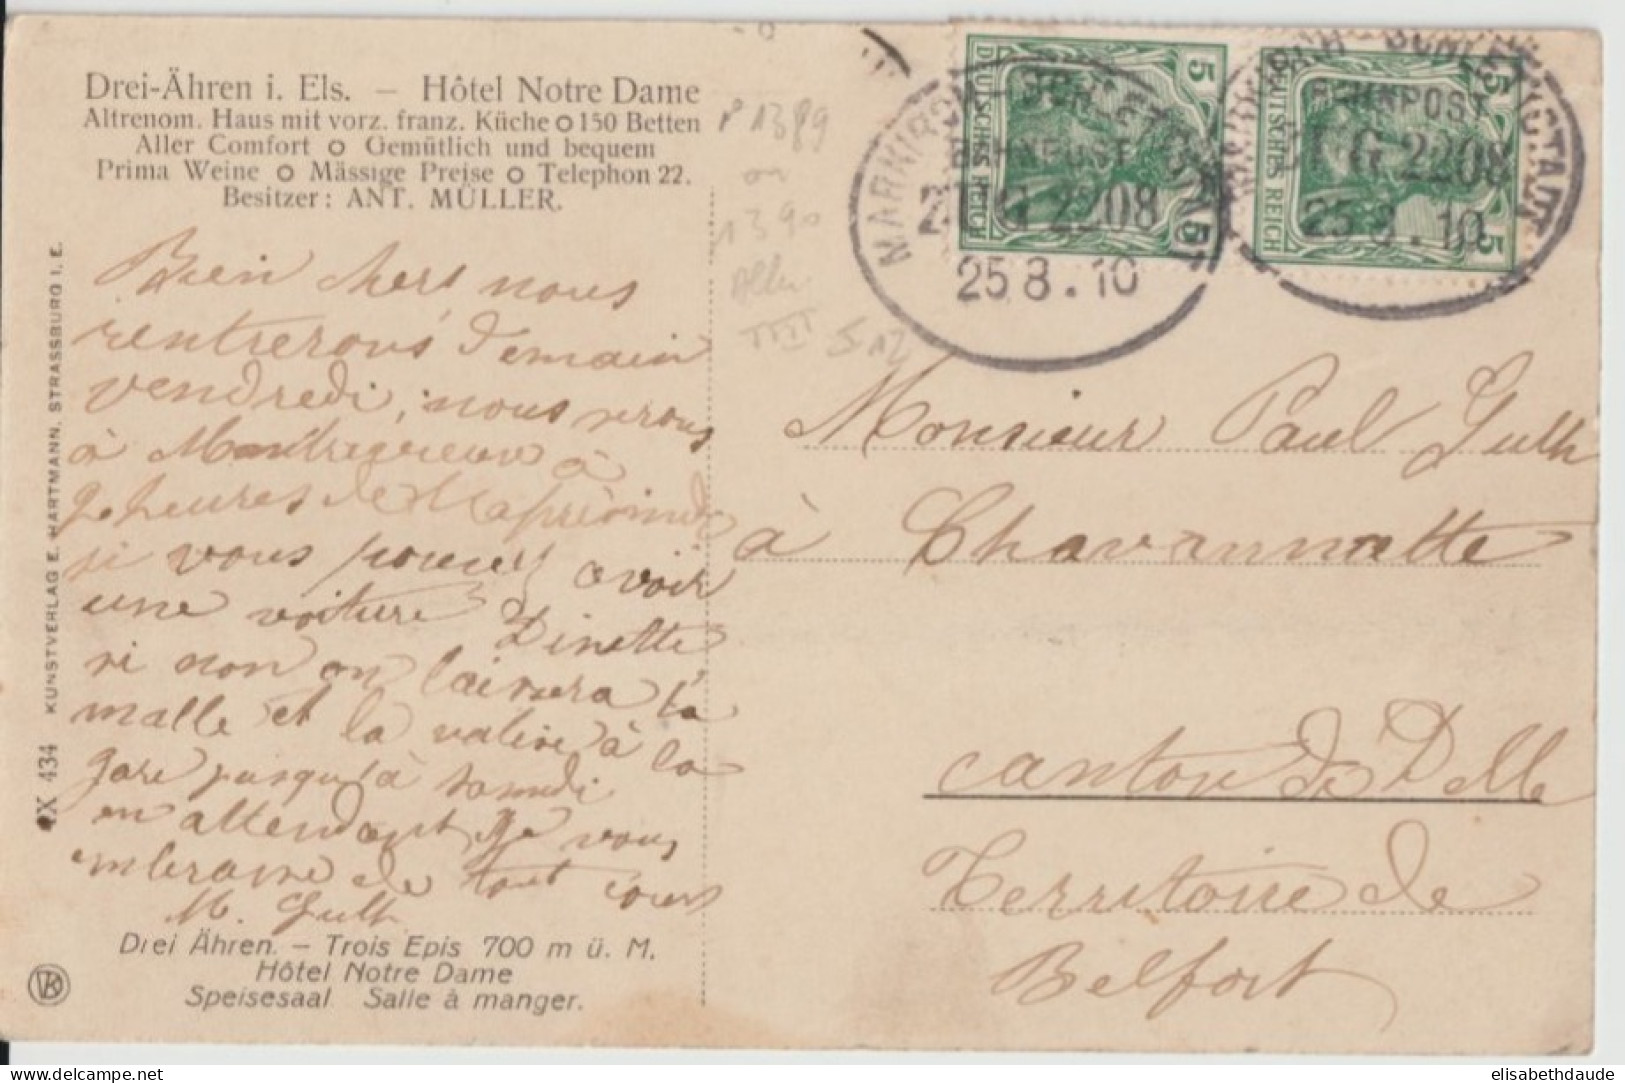 Drei-Ähren i. Els. — Hôtel Notre Dame
Altrenom. Haus mit vorz. franz. Küche o 150 Betten
Aller Comfort o Gemütlich und bequem
Prima Weine o Mässige Preise o Telephon 22.
Besitzer: ANT. MÜLLER.
P 1389
ou
1390
Bien chers nous
rentrerons demain
vendredi, nous serons
à Montreuxvieux à
heures de l'après midi
si vous pouvez avoir
une voiture
si non on laissera la
malle et la valise à la
gare jusqu'à samedi
en attendant je vous
embrasse de tout cœur
Drei Ähren. – Trois Epis 700 m ü. M.
Hôtel Notre Dame
Speisesaal Salle à manger.
ЄX 434 KUNSTVERLAG E. HARTMANN, STRASSBURG I. E.
MARKIRCH - SCHLETTSTADT
BAHNPOST
ZUG 2208
25 8 . 10
DEUTSCHES REICH
5 5
MARKIRCH - SCHLETTSTADT
BAHNPOST
ZUG 2208
25 8 . 10
DEUTSCHES REICH
5 5
Monsieur Paul
à Chavannatte
canton de Delle
Territoire de
Belfort
delcampe.net
elisabethdaude